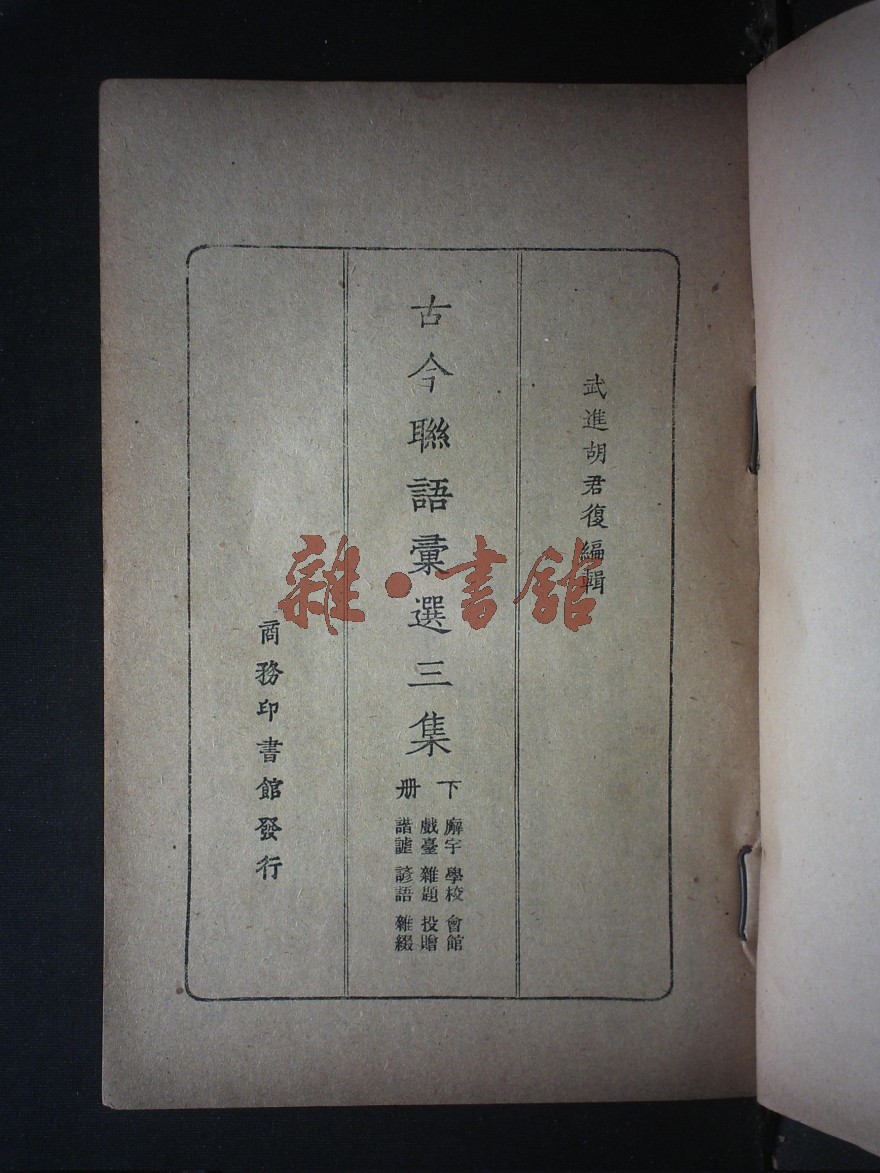 武進胡君復編輯
古今聯語彙選三集
下册
廨宇 學校 會館
戲臺 雜題 投贈
諧謔 諺語 雜綴
商務印書館發行
雜·書館